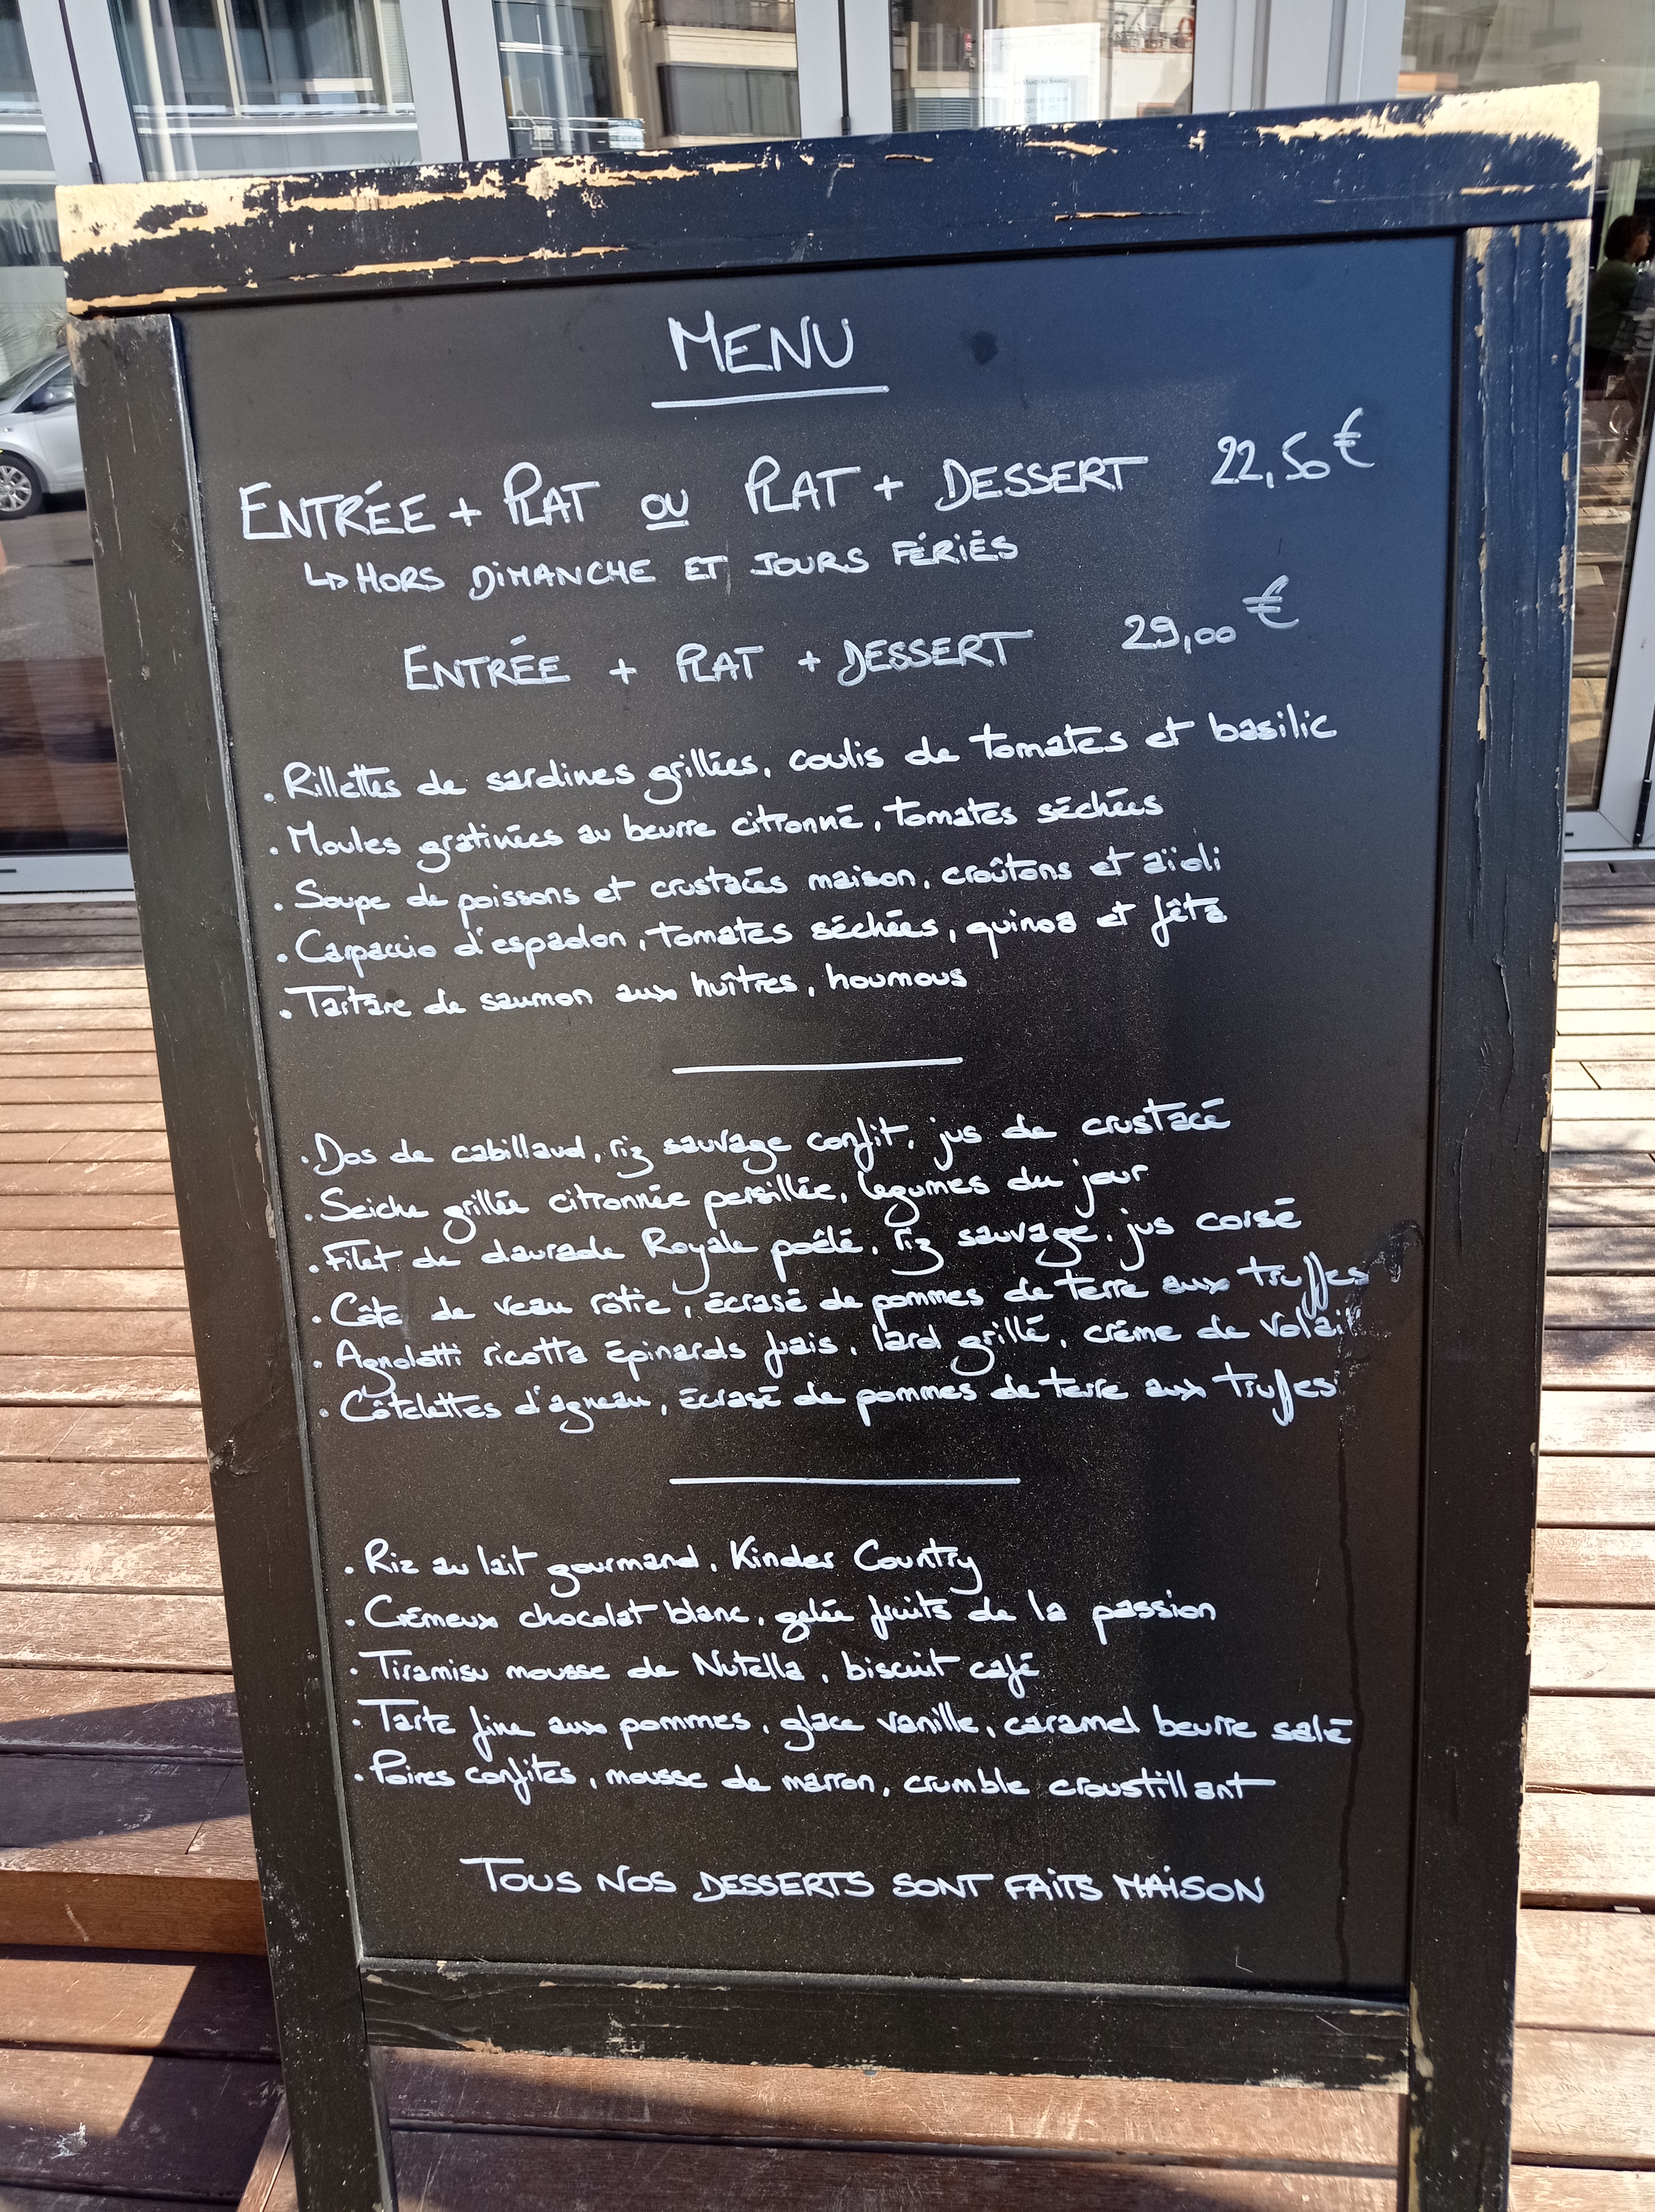 MENU
ENTRÉE + PLAT OU PLAT + DESSERT 22,50 €
↳ HORS DIMANCHE ET JOURS FÉRIÉS
ENTRÉE + PLAT + DESSERT 29,00 €
. Rillettes de sardines grillées, coulis de tomates et basilic
. Moules gratinées au beurre citronné, tomates séchées
. Soupe de poissons et crustacés maison, croûtons et aïoli
. Carpaccio d'espadon, tomates séchées, quinoa et fêta
. Tartare de saumon aux huîtres, houmous
. Dos de cabillaud, riz sauvage confit, jus de crustacé
. Seiche grillée citronnée persillée, légumes du jour
. Filet de daurade Royale poêlé, riz sauvage, jus corsé
. Côte de veau rôtie, écrasé de pommes de terre aux truffes
. Agnolotti ricotta épinards frais, lard grillé, crème de
. Côtelettes d'agneau, écrasé de pommes de terre aux truffes
. Riz au lait gourmand, Kinder Country
. Crémeux chocolat blanc, gelée fruits de la passion
. Tiramisu mousse de Nutella, biscuit café
. Tarte fine aux pommes, glace vanille, caramel beurre salé
. Poires confites, mousse de marron, crumble croustillant
TOUS NOS DESSERTS SONT FAITS MAISON